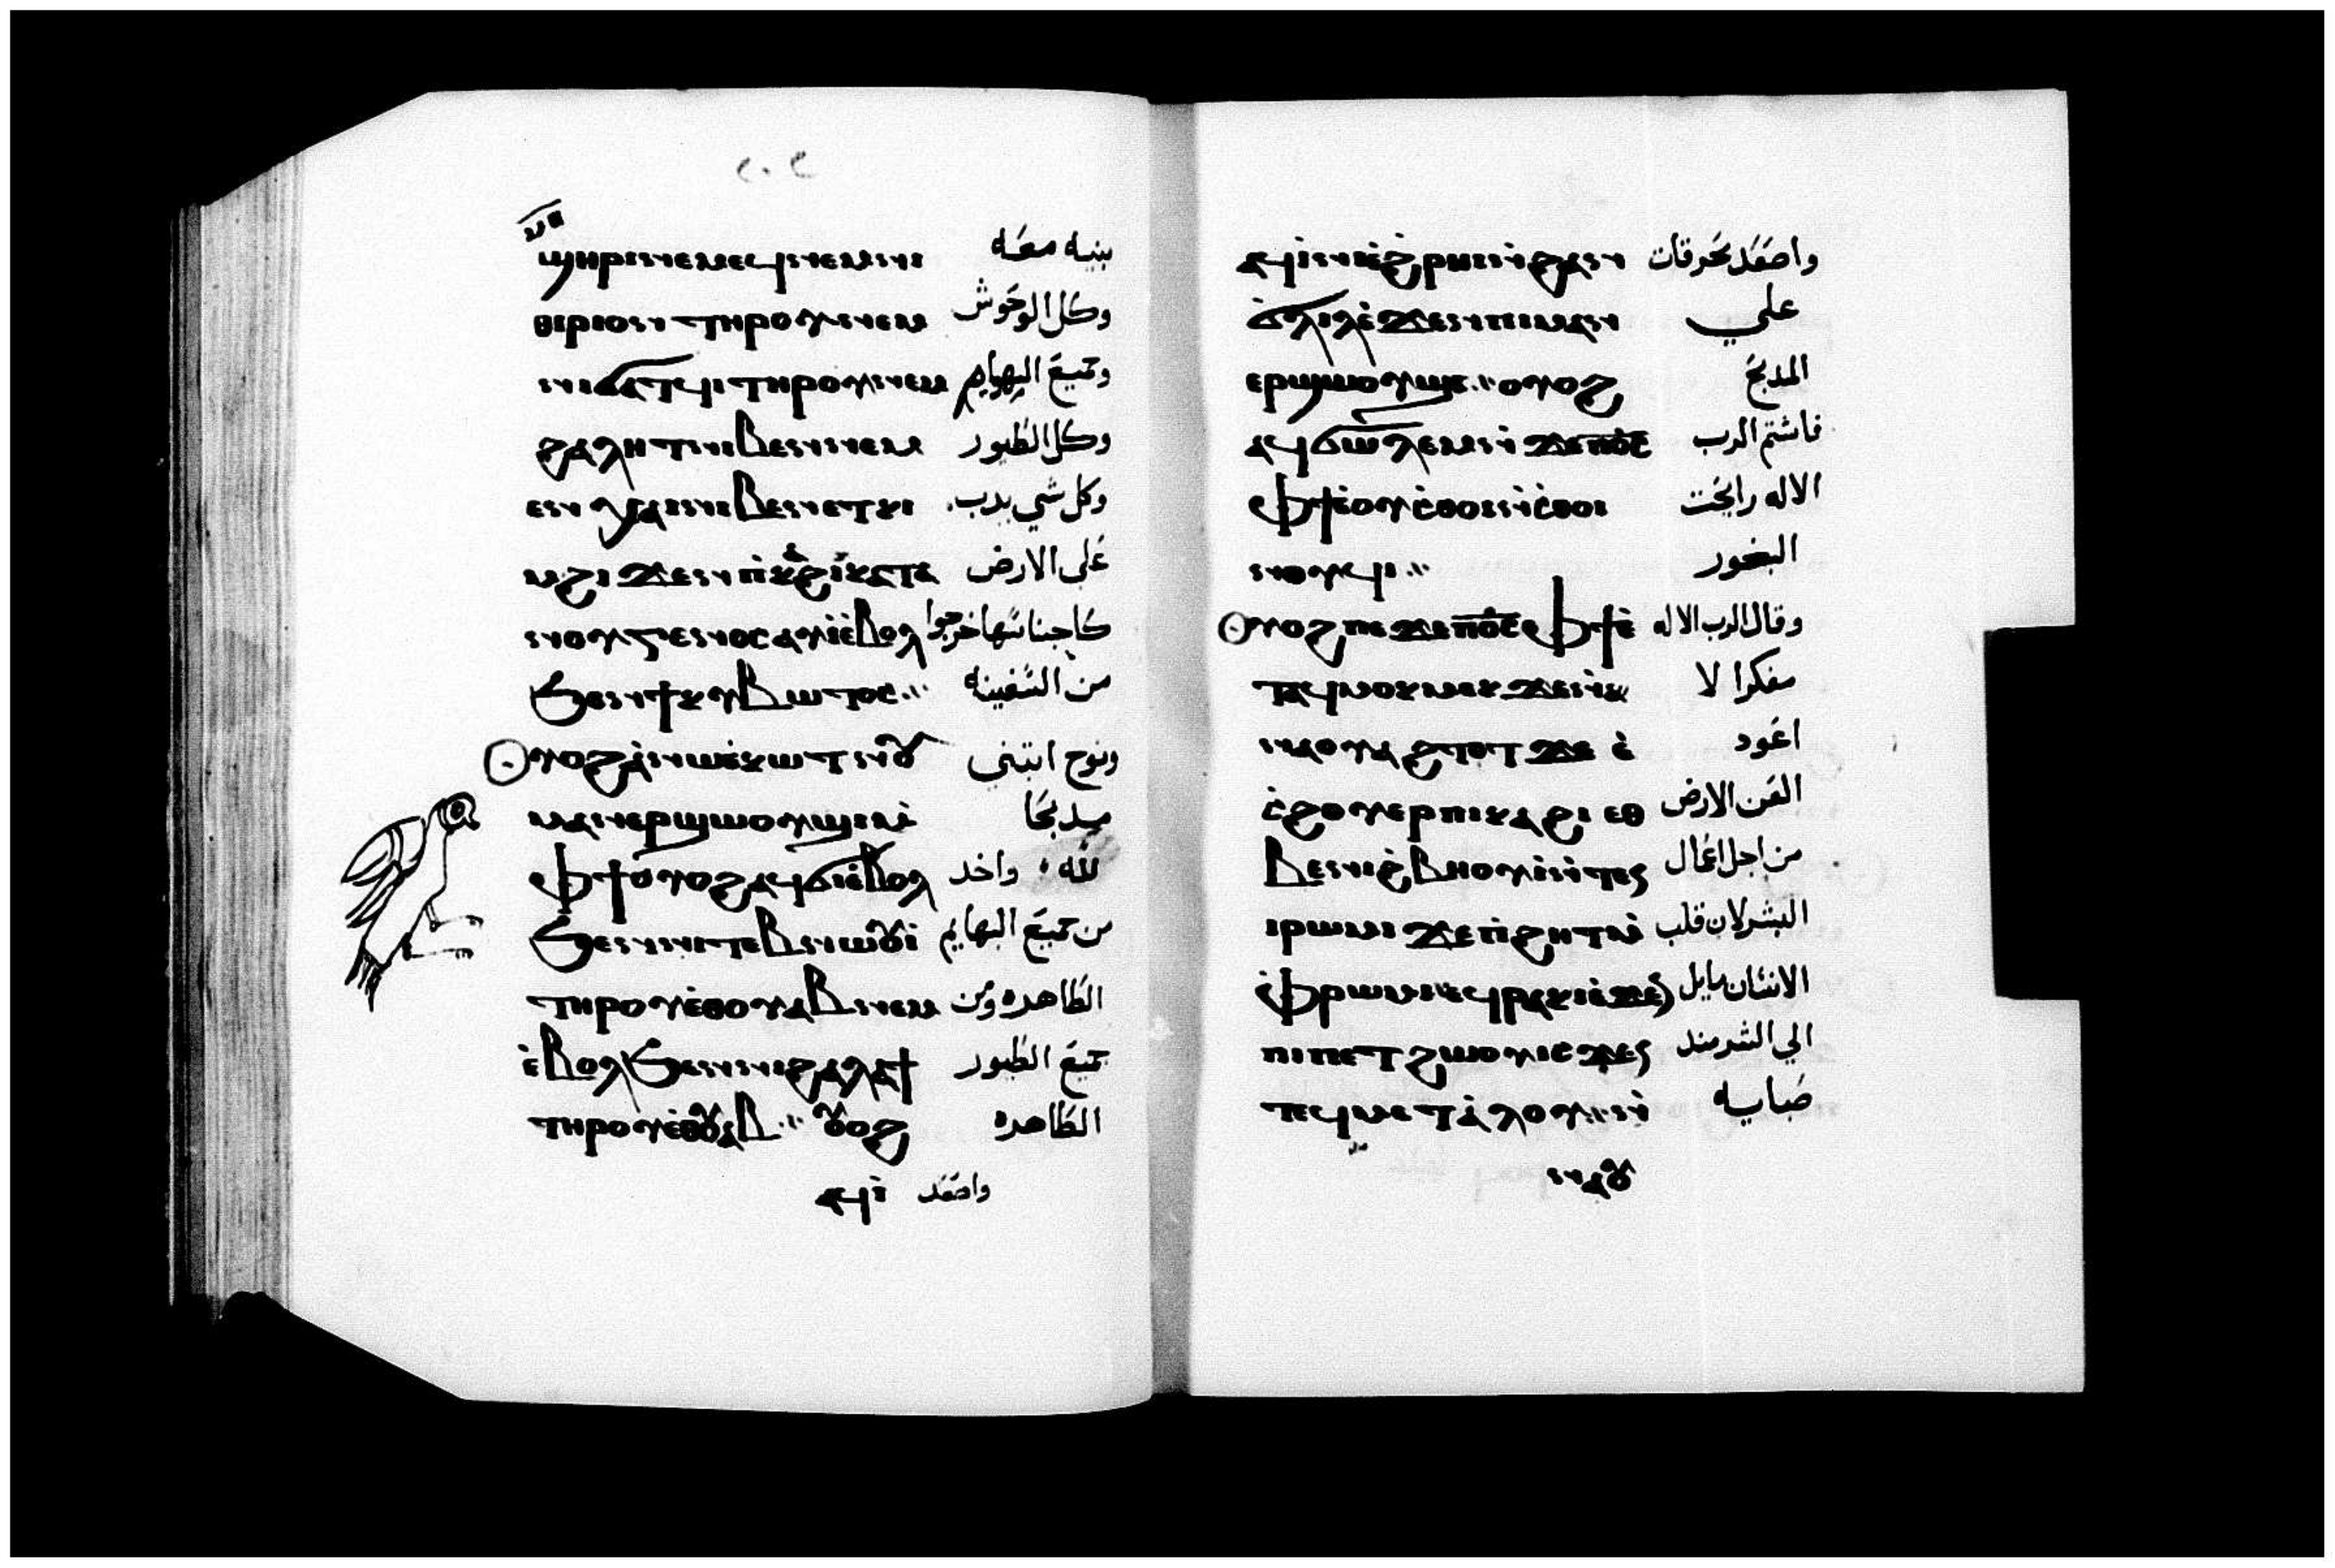 ϣⲏⲣⲓ ⲛⲉⲙⲁϥ ⲛⲉⲙ ⲛⲓ بنيه معه
ⲑⲏⲣⲓⲟⲛ ⲧⲏⲣⲟⲩ ⲛⲉⲙ وكل الوحوش
ⲛⲓϭⲁⲧϥⲓ ⲧⲏⲣⲟⲩ ⲛⲉⲙ وجميع البهايم
ϩⲁⲗⲏⲧ ⲛⲓⲃⲉⲛ ⲛⲉⲙ وكل الطيور
ⲉⲛⲭⲁⲓ ⲛⲓⲃⲉⲛ ⲉⲧⲕⲓ وكل شي يدب
ϩⲓϫⲉⲛ ⲡⲓⲕⲁϩⲓ ⲕⲁⲧⲁ على الارض
ⲛⲟⲩⲅⲉⲛⲟⲥ ⲁⲩⲓ̀ ⲉ̀ⲃⲟⲗ كاجناسها خرجوا
ϧⲉⲛ ϯⲕⲩⲃⲱⲧⲟⲥ من السفينه
ⲟⲩⲟϩ ⲁ̀ ⲛⲱⲉ̀ ⲕⲱⲧ ⲛⲟⲩ ونوح ابتني
ⲙⲁⲛⲉⲣϣⲱⲟⲩϣⲓ ⲙ̀ مدبحا
ⲫϯ ⲟⲩⲟϩ ⲁϥϭⲓ ⲉ̀ⲃⲟⲗ لله واخد
ϧⲉⲛ ⲛⲓⲧⲉⲃⲛⲱⲟⲩⲓ̀ من جميع البهايم
ⲧⲏⲣⲟⲩ ⲉ̀ⲑⲟⲩⲁⲃ ⲛⲉⲙ الطاهره ومن
ⲉ̀ⲃⲟⲗ ϧⲉⲛ ⲛⲓϩⲁⲗⲁϯ جميع الطيور
ⲧⲏⲣⲟⲩ ⲉ̀ⲑⲟⲩⲁⲃ ⲟⲩⲟϩ الطاهره
ⲁϥⲓ̀ واصعد
ⲁϥⲓ̀ⲛⲓ ⲉ̀ϩⲣⲏⲓ ⲛ̀ϩⲁⲛ واصعد محرقات
ϭⲗⲓⲗ ⲉ̀ϫⲉⲛ ⲡⲓⲙⲁⲛ علي
ⲉⲣϣⲱⲟⲩϣⲓ ⲟⲩⲟϩ المدبح
ⲁϥϭⲱⲗⲉⲙ ⲛ̀ϫⲉ ⲡ̅ⲟ̅ⲥ̅ فاشتم الرب
ⲫϯ ⲉ̀ⲟⲩⲥ̀ⲑⲟⲓ ⲛ̀ⲥ̀ⲑⲟⲓ الاله رايحت
ⲛⲟⲩϥⲓ البخور
ⲟⲩⲟϩ ⲡⲉϫⲉ ⲡ̅ⲟ̅ⲥ̅ ⲫϯ ⲉ̀ وقال الرب الاله
ⲧⲁϥⲙⲟⲕⲙⲉⲕ ϫⲉ ⲛ̀ مفكرا لا
ⲛⲁⲟⲩⲁϩⲧⲟⲧ ϫⲉ ⲉ̀ اعود
ⲥ̀ϩⲟⲩⲉⲣ ⲡⲓⲕⲁϩⲓ ⲉⲑ العن الارض
ⲃⲉ ⲛⲓϩ̀ⲃⲏⲟⲩⲓ̀ ⲛ̀ⲧⲉ ⲛ من اجل اعمال
ⲓⲣⲱⲙⲓ ϫⲉ ⲡ̀ϩⲏⲧ ⲙ̀ البشر لان قلب
ⲫ̀ⲣⲱⲙⲓ ϥⲣⲁⲕⲓ ⲉ̀ϫⲉⲛ الانسان مايل
ⲡⲓⲡⲉⲧϩⲱⲟⲩ ⲓⲥϫⲉⲛ الي الشر مند
ⲧⲉϥⲙⲉⲧⲁ̀ⲗⲟⲩ ⲛ̀ صبايه
ⲛⲁⲟⲩ